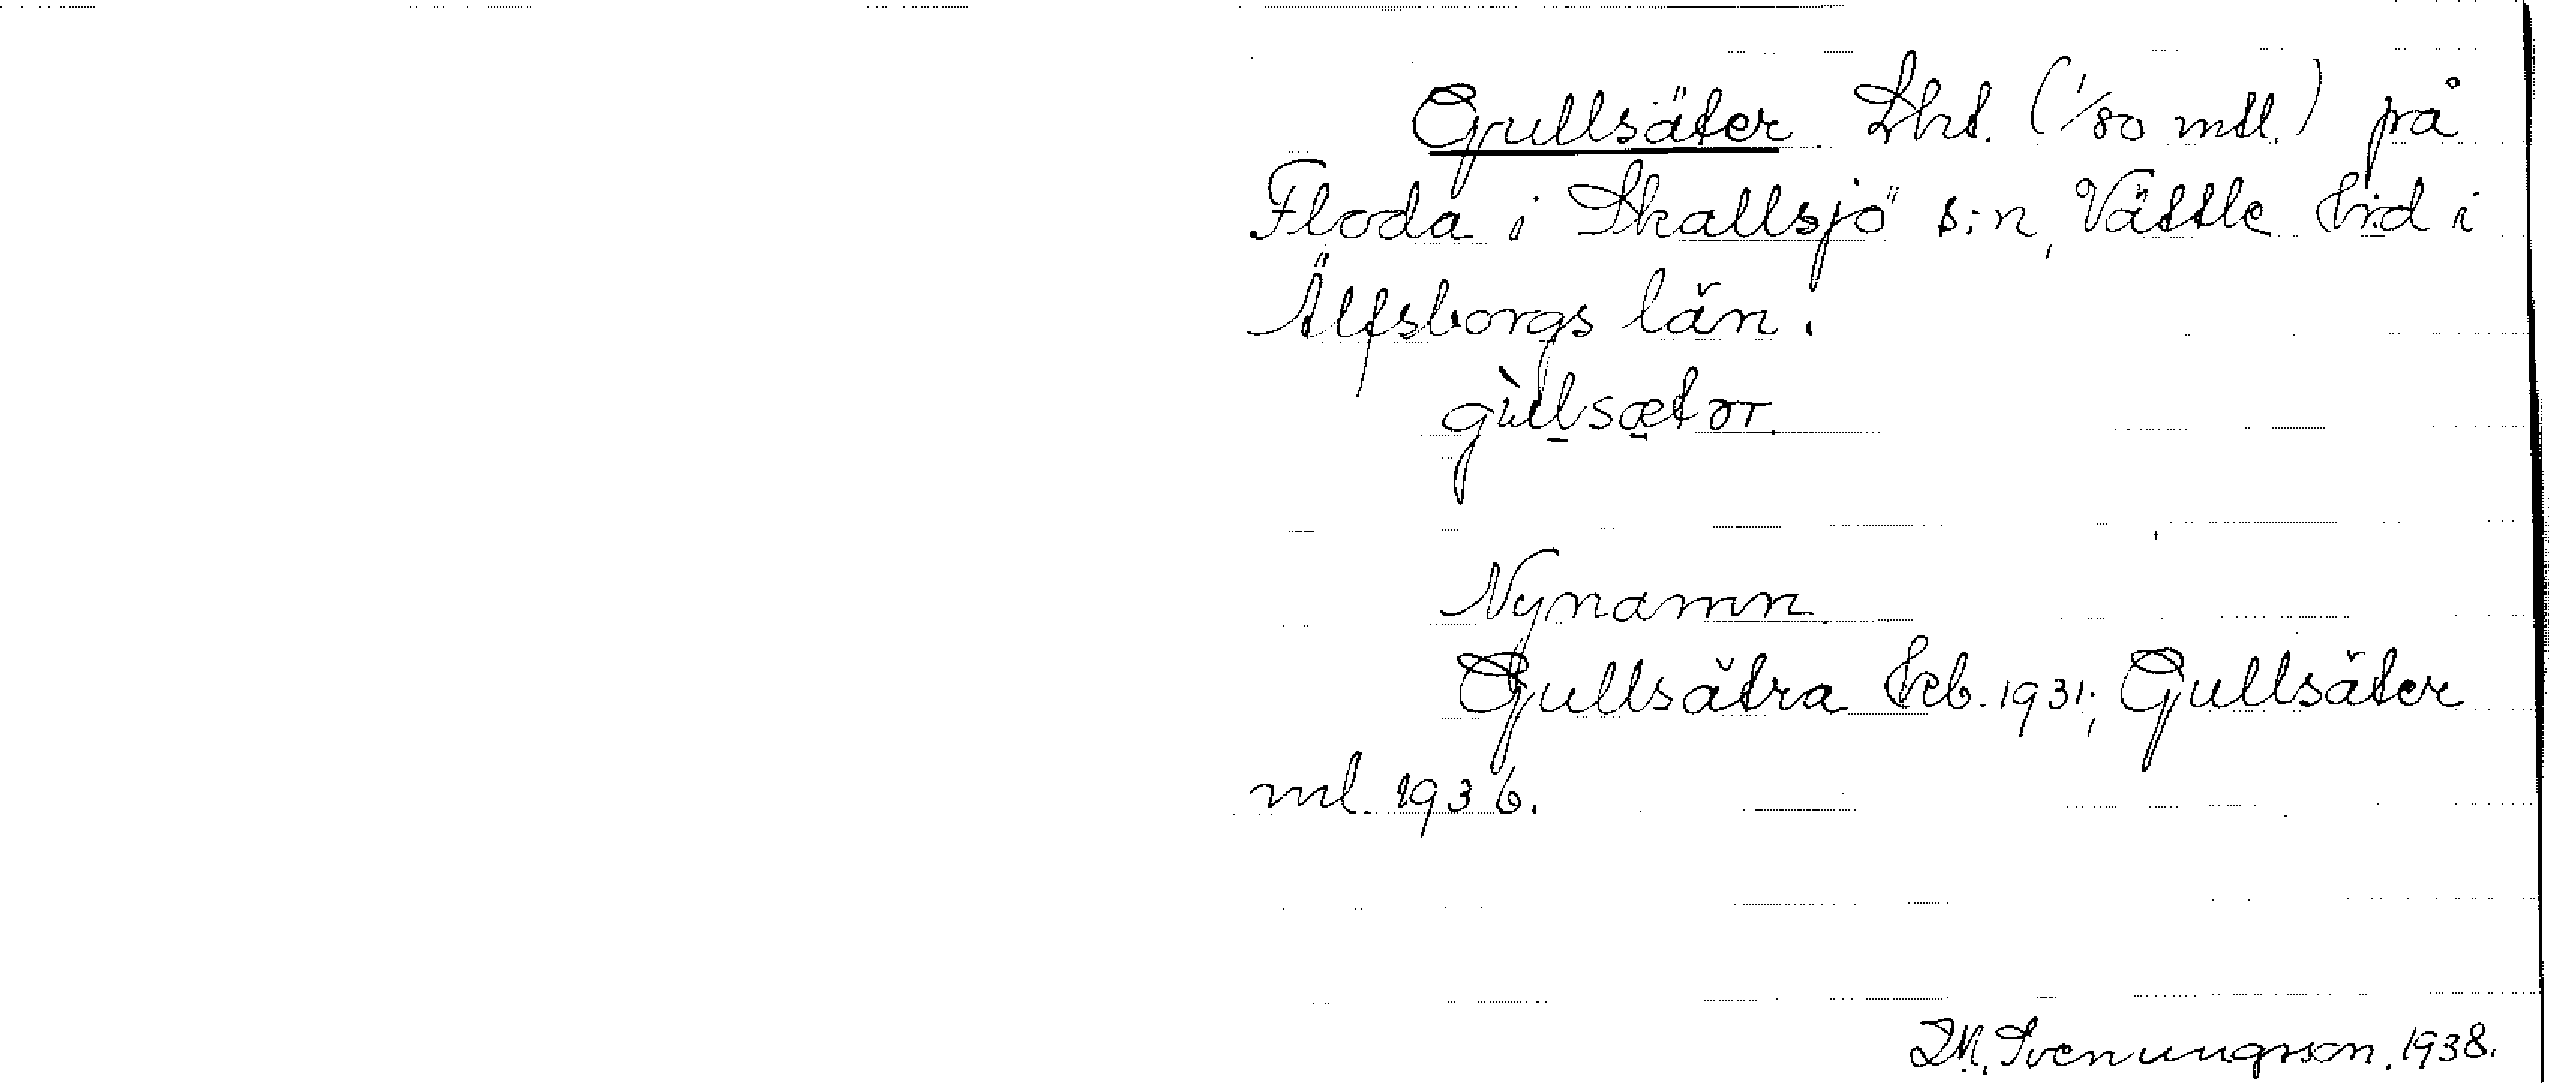 Gullsäter. Lht. (1/80 mtl.) på
Floda i Skallsjö s:n, Vättle hd i
Älfsborgs län.
gùl̠lsæ̠tər.
Nynamn.
Gullsätra kb. 1931; Gullsäter
ml. 1936.
Svenungsson. 1938.